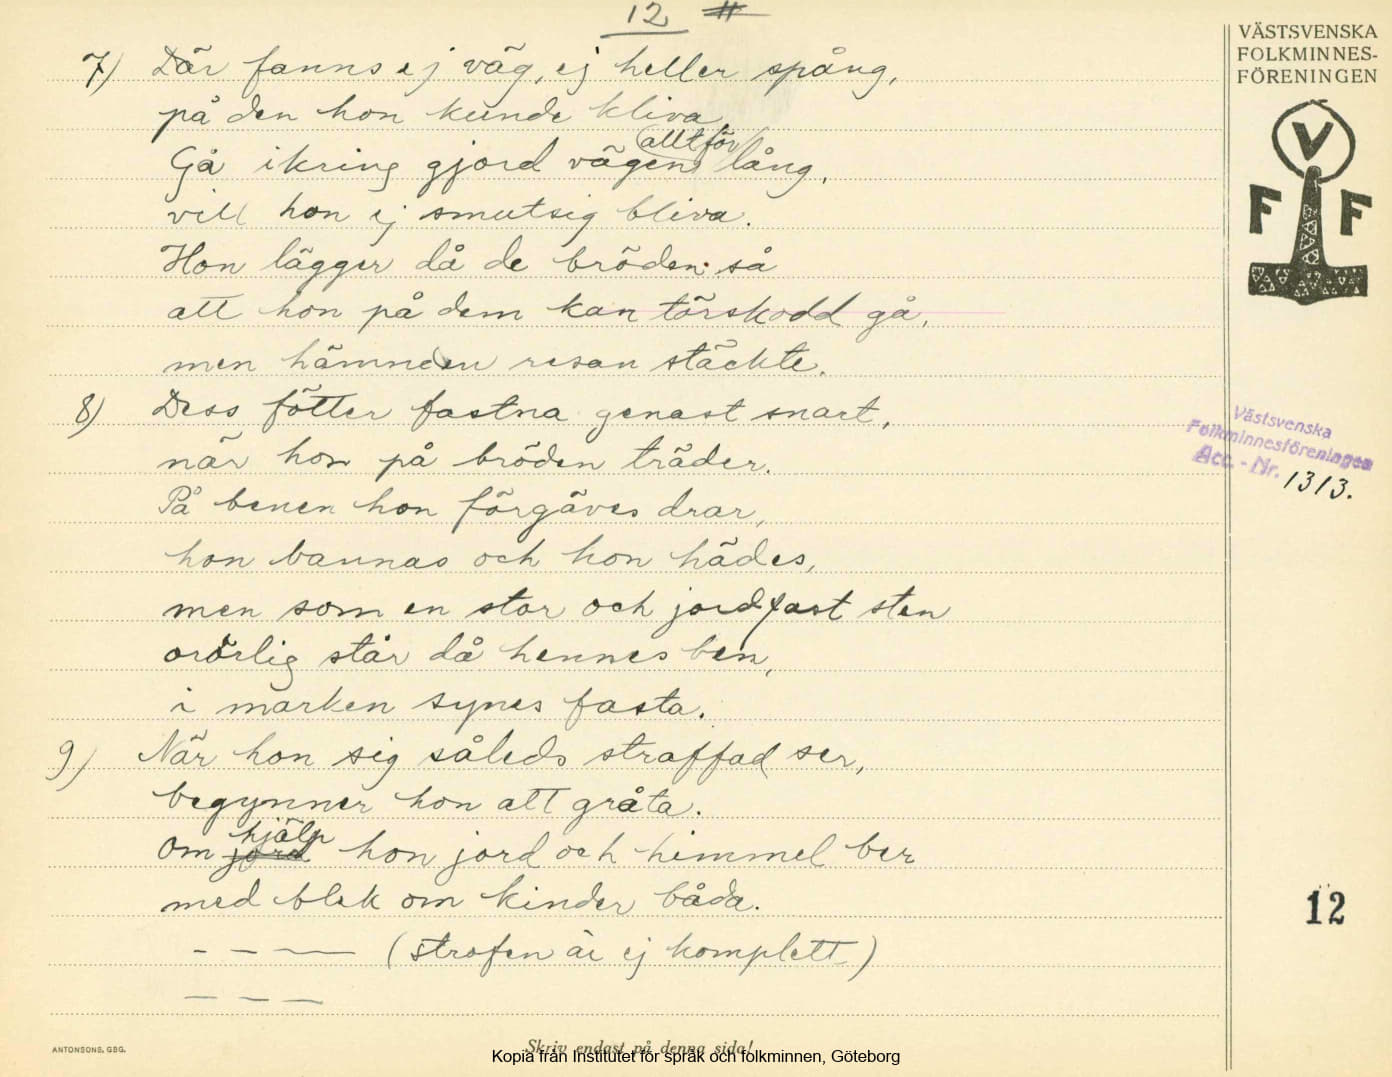 12 #
7) Där fanns ej väg, ej heller spång,
på den hon kunde kliva
Gå ikring gjord vägen (alltför) lång,
vill hon ej smutsig bliva.
Hon lägger då de bröden så
att hon på dem kan törskodd gå,
men hämnden resan stäckte.
8) Dess fötter fastna genast snart,
när hon på bröden träder.
På benen hon förgäves drar,
hon bannas och hon hädes,
men som en stor och jordfast sten
orörlig står då hennes ben,
i marken synes fasta.
9) När hon sig såleds straffad ser,
begynner hon att gråta.
Om jord hjälp hon jord och himmel ber
med blek om kinder båda.
- - — (strofen är ej komplett)
— — —
VÄSTSVENSKA
FOLKMINNES-
FÖRENINGEN
V
F F
Västsvenska
Folkminnesföreningen
Acc. - Nr. 1313.
12
ANTONSONS, GBG.
Skriv endast på denna sida!
Kopia från Institutet för språk och folkminnen, Göteborg